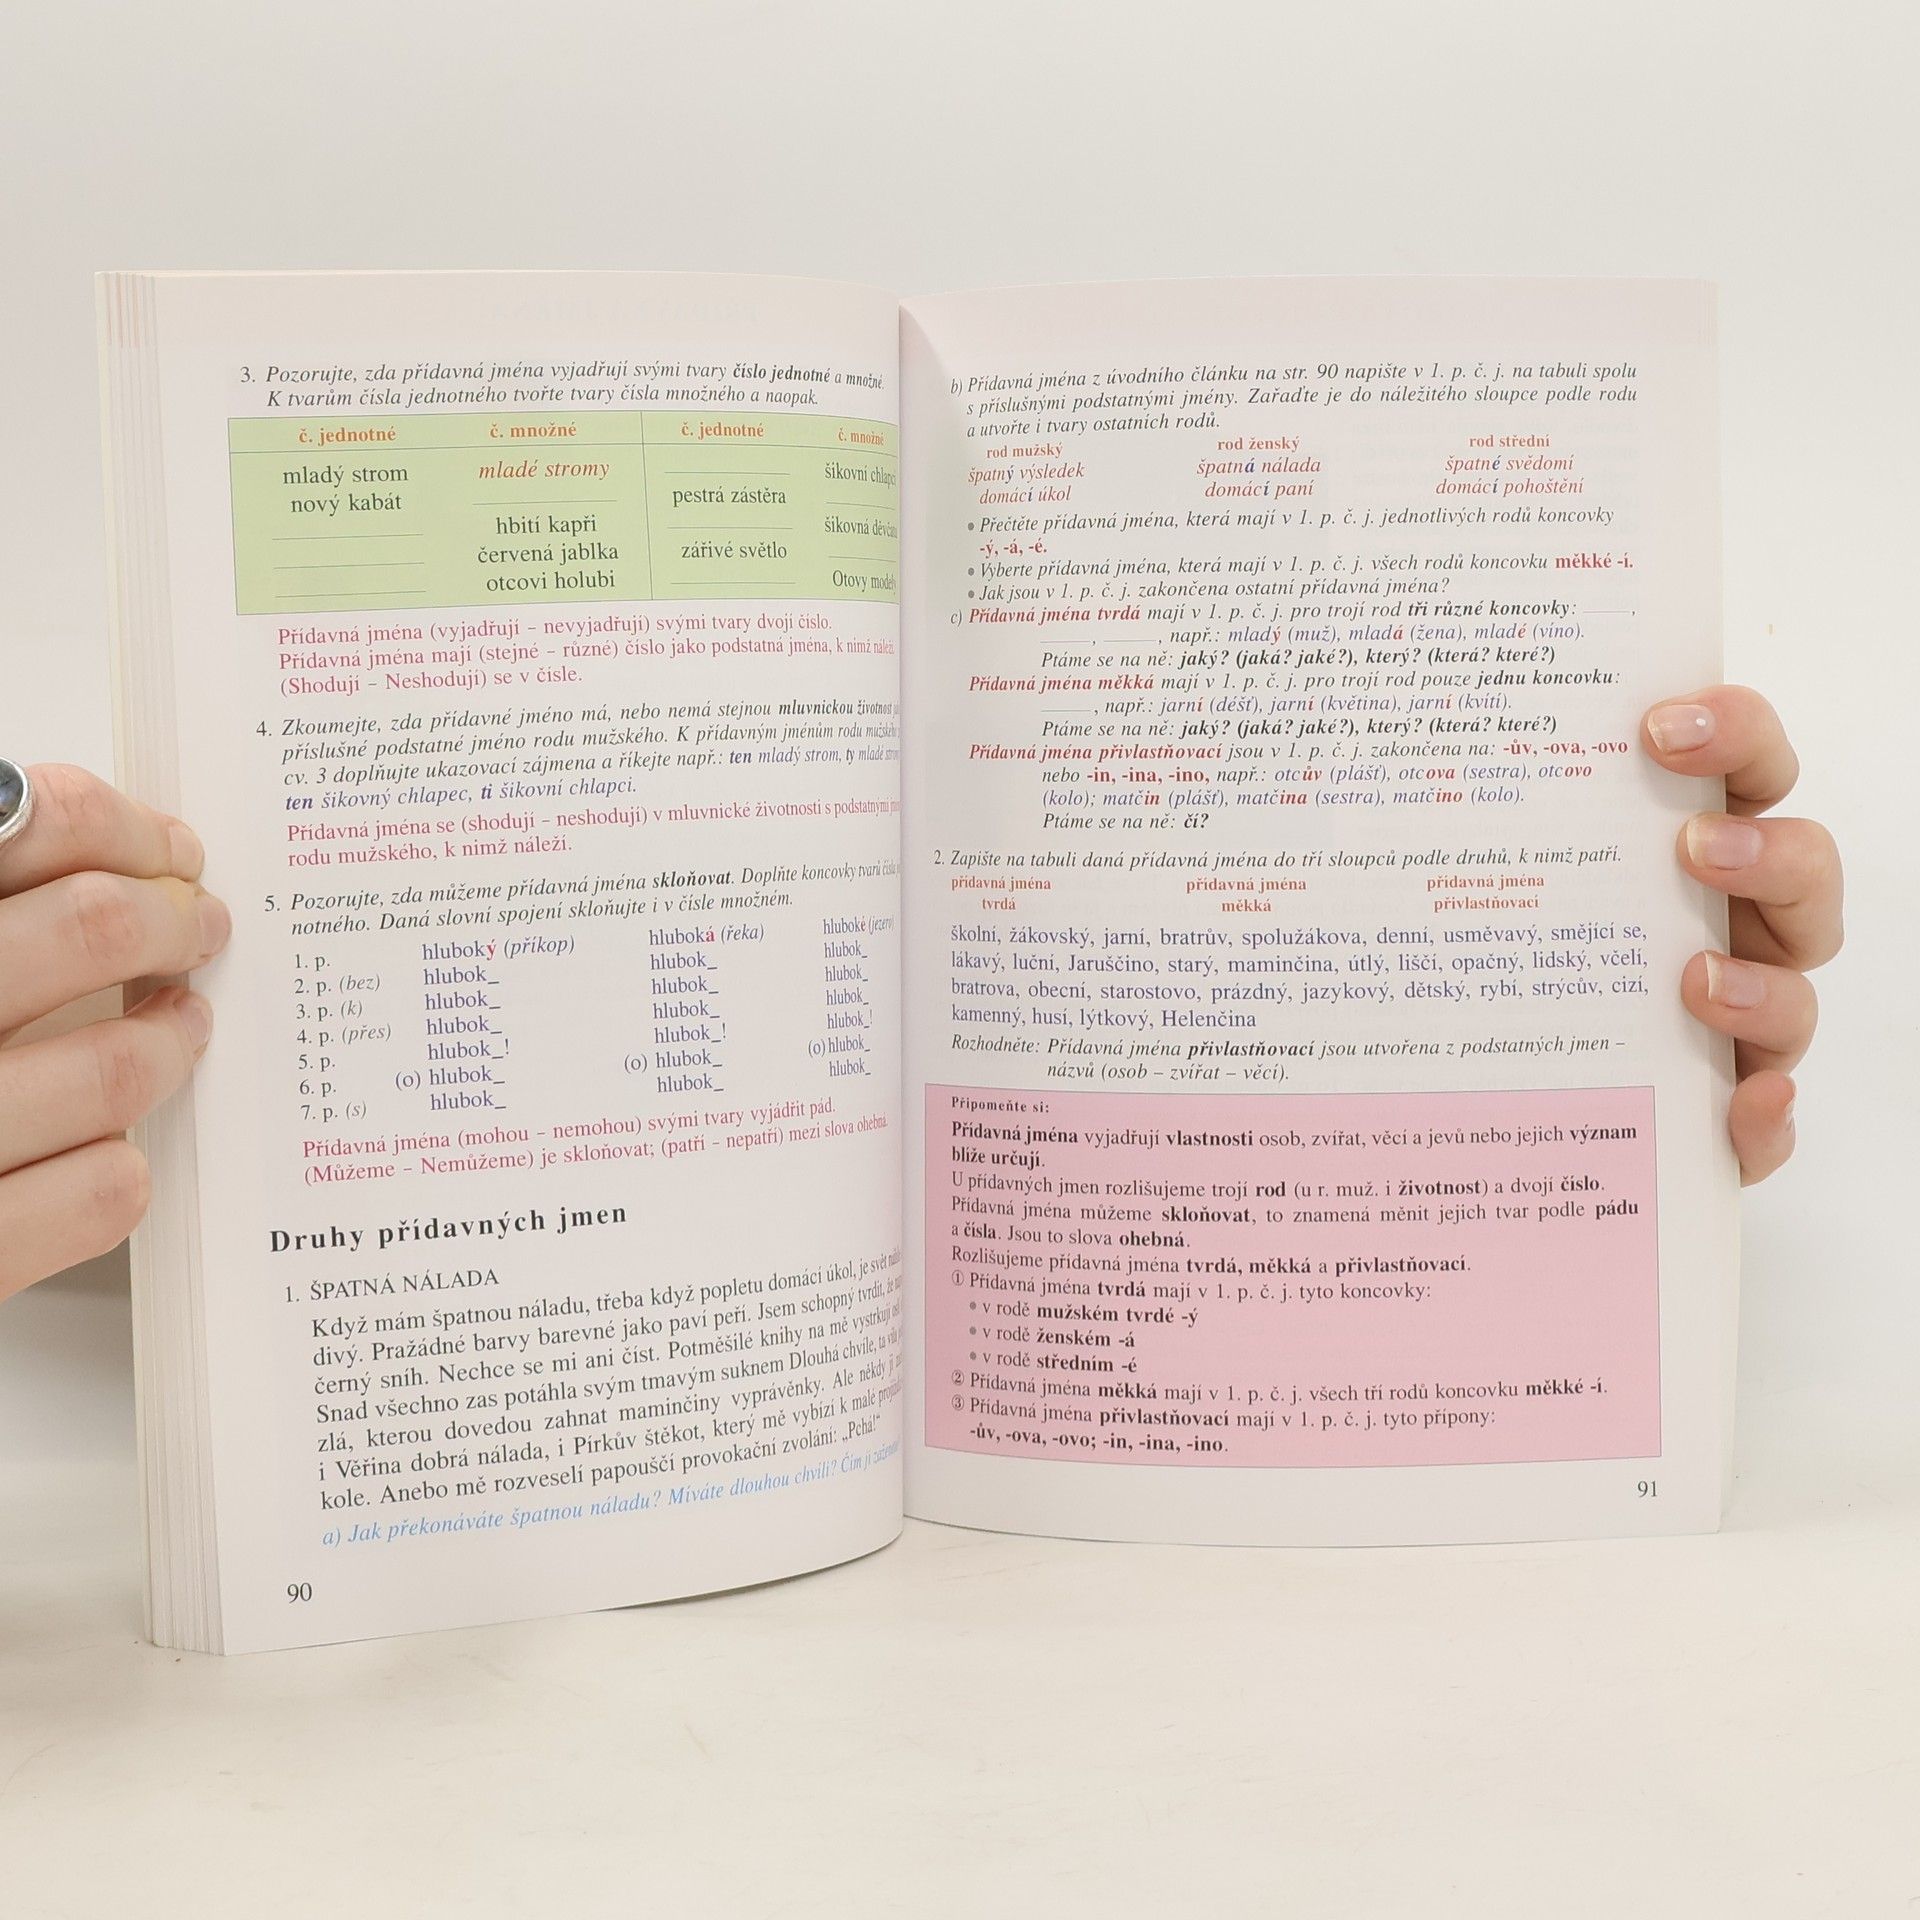 3. Pozorujte, zda přídavná jména vyjadřují svými tvary číslo jednotné a množné.
K tvarům čísla jednotného tvořte tvary čísla množného a naopak.
č. jednotné č. množné č. jednotné č. množné
mladý strom mladé stromy ________ šikovní chlapci
nový kabát ________ pestrá zástěra ________
________ hbití kapři ________ šikovná děvčata
________ červená jablka zářivé světlo ________
________ otcovi holubi ________ Otovy modely
Přídavná jména (vyjadřují – nevyjadřují) svými tvary dvojí číslo.
Přídavná jména mají (stejné – různé) číslo jako podstatná jména, k nimž náleží.
(Shodují – Neshodují) se v čísle.
4. Zkoumejte, zda přídavné jméno má, nebo nemá stejnou mluvnickou životnost
příslušné podstatné jméno rodu mužského. K přídavným jménům rodu mužského
cv. 3 doplňujte ukazovací zájmena a říkejte např.: ten mladý strom, ty mladé stromy,
ten šikovný chlapec, ti šikovní chlapci.
Přídavná jména se (shodují – neshodují) v mluvnické životnosti s podstatnými
rodu mužského, k nimž náleží.
5. Pozorujte, zda můžeme přídavná jména skloňovat. Doplňte koncovky tvarů čísla
notného. Daná slovní spojení skloňujte i v čísle množném.
1. p. hluboký (příkop) hluboká (řeka) hluboké (jezero)
2. p. (bez) hlubok_ hlubok_ hlubok_
3. p. (k) hlubok_ hlubok_ hlubok_
4. p. (přes) hlubok_ hlubok_ hlubok_
5. p. hlubok_! hlubok_! hlubok_!
6. p. (o) hlubok_ (o) hlubok_ (o) hlubok_
7. p. (s) hlubok_ hlubok_ hlubok_
Přídavná jména (mohou – nemohou) svými tvary vyjádřit pád.
(Můžeme – Nemůžeme) je skloňovat; (patří – nepatří) mezi slova ohebná.
Druhy přídavných jmen
1. ŠPATNÁ NÁLADA
Když mám špatnou náladu, třeba když popletu domácí úkol, je svět
divý. Pražádné barvy barevné jako paví peří. Jsem schopný tvrdit, že
černý sníh. Nechce se mi ani číst. Potměšilé knihy na mě vystrkují
Snad všechno zas potáhla svým tmavým suknem Dlouhá chvíle, ta
zlá, kterou dovedou zahnat maminčiny vyprávěnky. Ale někdy ji
i Věřina dobrá nálada, i Pírkův štěkot, který mě vybízí k malé
kole. Anebo mě rozveselí papouščí provokační zvolání: „Pchá!“
a) Jak překonáváte špatnou náladu? Míváte dlouhou chvíli? Čím ji
90
b) Přídavná jména z úvodního článku na str. 90 napište v 1. p. č. j. na tabuli spolu
s příslušnými podstatnými jmény. Zařaďte je do náležitého sloupce podle rodu
a utvořte i tvary ostatních rodů.
rod mužský rod ženský rod střední
špatný výsledek špatná nálada špatné svědomí
domácí úkol domácí paní domácí pohoštění
• Přečtěte přídavná jména, která mají v 1. p. č. j. jednotlivých rodů koncovky
-ý, -á, -é.
• Vyberte přídavná jména, která mají v 1. p. č. j. všech rodů koncovku měkké -í.
• Jak jsou v 1. p. č. j. zakončena ostatní přídavná jména?
c) Přídavná jména tvrdá mají v 1. p. č. j. pro trojí rod tři různé koncovky: ____,
____, ____, např.: mladý (muž), mladá (žena), mladé (víno).
Ptáme se na ně: jaký? (jaká? jaké?), který? (která? které?)
Přídavná jména měkká mají v 1. p. č. j. pro trojí rod pouze jednu koncovku:
____, např.: jarní (déšť), jarní (květina), jarní (kvítí).
Ptáme se na ně: jaký? (jaká? jaké?), který? (která? které?)
Přídavná jména přivlastňovací jsou v 1. p. č. j. zakončena na: -ův, -ova, -ovo
nebo -in, -ina, -ino, např.: otcův (plášť), otcova (sestra), otcovo
(kolo); matčin (plášť), matčina (sestra), matčino (kolo).
Ptáme se na ně: čí?
2. Zapište na tabuli daná přídavná jména do tří sloupců podle druhů, k nimž patří.
přídavná jména přídavná jména přídavná jména
tvrdá měkká přivlastňovací
školní, žákovský, jarní, bratrův, spolužákova, denní, usměvavý, smějící se,
lákavý, luční, Jaruščino, starý, maminčina, útlý, liščí, opačný, lidský, včelí,
bratrova, obecní, starostovo, prázdný, jazykový, dětský, rybí, strýcův, cizí,
kamenný, husí, lýtkový, Helenčina
Rozhodněte: Přídavná jména přivlastňovací jsou utvořena z podstatných jmen –
názvů (osob – zvířat – věcí).
Připomeňte si:
Přídavná jména vyjadřují vlastnosti osob, zvířat, věcí a jevů nebo jejich význam
blíže určují.
U přídavných jmen rozlišujeme trojí rod (u r. muž. i životnost) a dvojí číslo.
Přídavná jména můžeme skloňovat, to znamená měnit jejich tvar podle pádu
a čísla. Jsou to slova ohebná.
Rozlišujeme přídavná jména tvrdá, měkká a přivlastňovací.
① Přídavná jména tvrdá mají v 1. p. č. j. tyto koncovky:
• v rodě mužském tvrdé -ý
• v rodě ženském -á
• v rodě středním -é
② Přídavná jména měkká mají v 1. p. č. j. všech tří rodů koncovku měkké -í.
③ Přídavná jména přivlastňovací mají v 1. p. č. j. tyto přípony:
-ův, -ova, -ovo; -in, -ina, -ino.
91